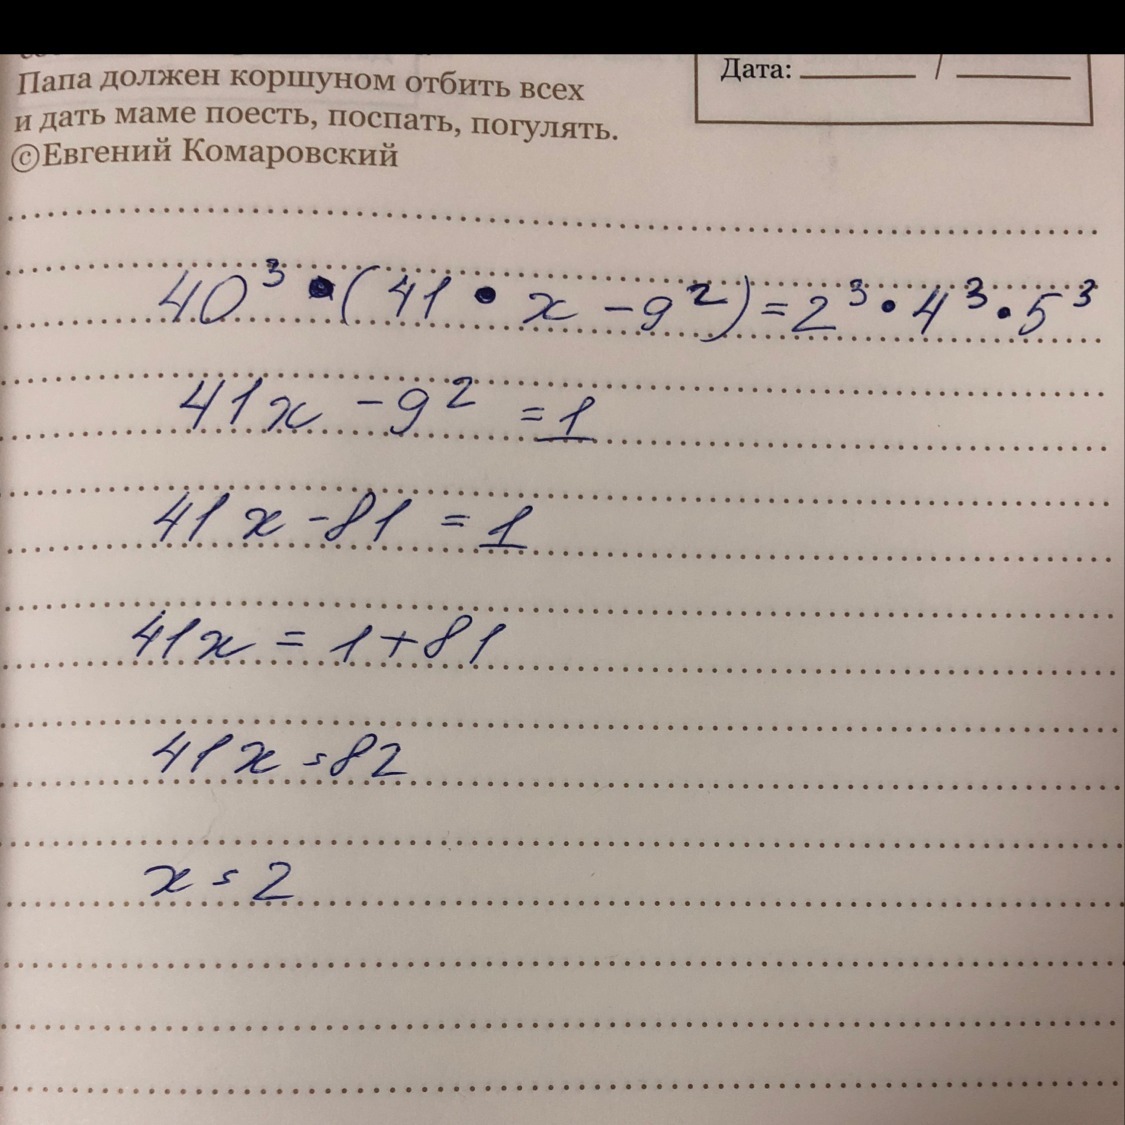 Папа должен коршуном отбить всех
и дать маме поесть, поспать, погулять.
©Евгений Комаровский
Дата: ______ / ______
40³ • (41 • x - 9²) = 2³ • 4³ • 5³
41x - 9² = 1
41x - 81 = 1
41x = 1 + 81
41x = 82
x = 2